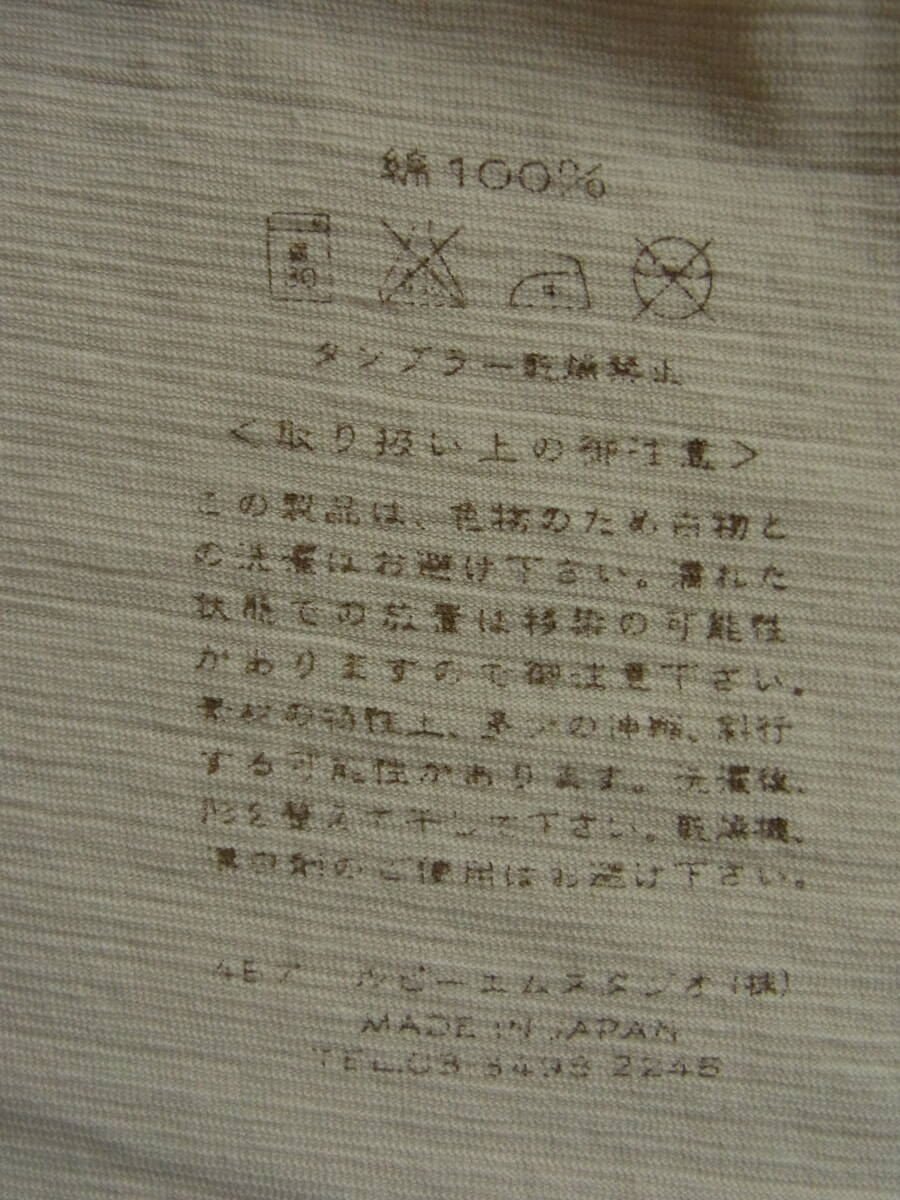 綿100%
弱
30
中
タンブラー乾燥禁止
＜取り扱い上の御注意＞
この製品は、色物のため白物と
の洗濯はお避け下さい。濡れた
状態での放置は移染の可能性
がありますので御注意下さい。
素材の特性上、多少の伸縮、斜行
する可能性があります。洗濯後、
形を整えて干して下さい。乾燥機、
漂白剤のご使用はお避け下さい。
45アールピーエムスタジオ(株)
MADE IN JAPAN
TEL.03-5498-2248